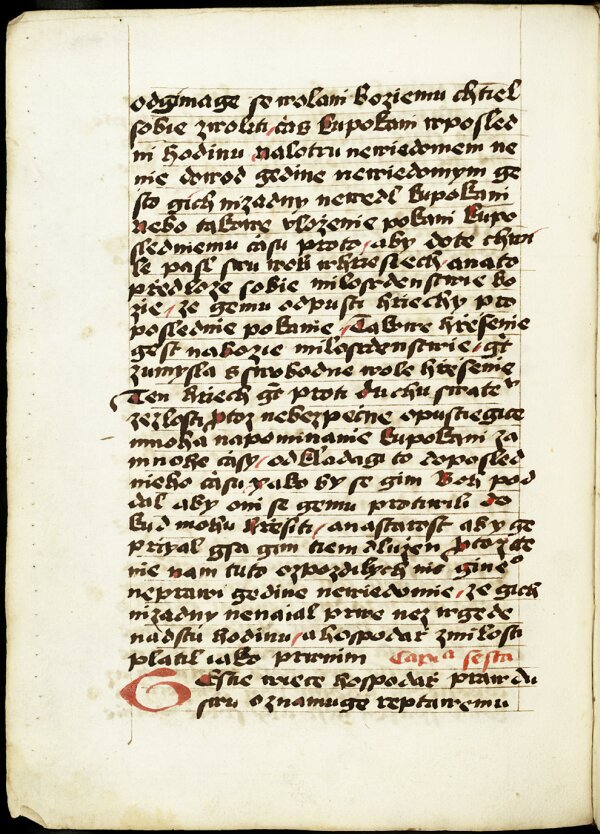 odgimage se wolani Boziemu chtiel
sobie zwoliti, čas kupokani wposled
ni hodinu nalotru newiedomem ne
nie dowod gedine newiedomym ge
sto gich nizadny newedl kupokani
nebo takowe vloženie pokani kupo
sledniemu času proto, aby dote chwi
le pasl swu woli whrzesiech, anato
předloze sobie milosrdenstwie bo
zie, ze gemu odpusti hřiechy pro
poslednie pokanie, Takowe hřešenie
gest nabozie milosrdenstwie, gt
zumysla s swobodne wole hřešenie
Ten hriech gt proti duchu swate
zezlosti ptoz nebezpečne opustiegice
mnoha napominanie kupokani za
mnohe časy, odkladagi to doposled
nieho času yako by se gim Boh pod
dal aby oni se gemu protiwili do
kud mohu hřešiti, anastarost aby ge
prigal gsa gim tiem dlužen ptoz čte
nie nam tuto ozpozdilych nic gine°
neprawi gedine newiedomie, ze gich
nizadny nenaial prwe nez wgede
nadstu hodinu, ahospodař zmilosti
platil iako prwnim Cap̃la sesta
Gestie wiece hospodař prawdu
swu oznamuge reptawemu